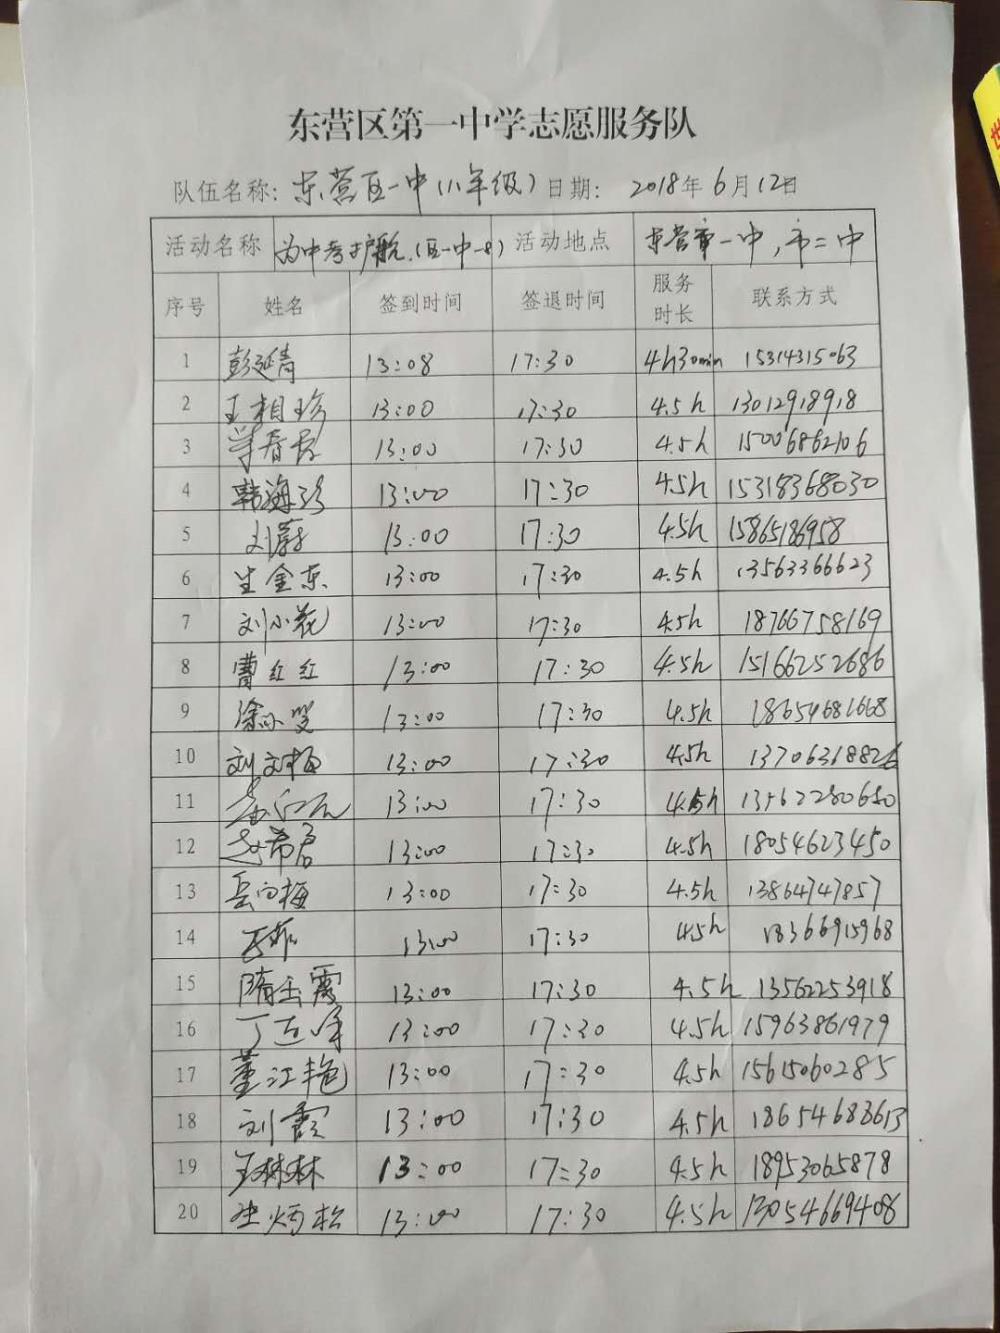 东营区第一中学志愿服务队
队伍名称: 东营区一中(八年级) 日期: 2018年6月12日
活动名称 为中考护航.(区一中-8) 活动地点 东营市一中,市二中
序号 姓名 签到时间 签退时间 服务时长 联系方式
1 彭延青 13:08 17:30 4h30min 15314315063
2 王相珍 13:00 17:30 4.5h 13012918918
3 13:00 17:30 4.5h 15006862106
4 韩海珍 13:00 17:30 4.5h 15318368030
5 刘蔚 13:00 17:30 4.5h 15865186958
6 生金东 13:00 17:30 4.5h 13563366623
7 刘小花 13:00 17:30 4.5h 18766758169
8 曹红红 13:00 17:30 4.5h 15166252686
9 13:00 17:30 4.5h 18654681668
10 刘文梅 13:00 17:30 4.5h 13706368826
11 13:00 17:30 4.5h 13562280650
12 赵希君 13:00 17:30 4.5h 18054623450
13 岳向梅 13:00 17:30 4.5h 13864747857
14 13:00 17:30 4.5h 18366915968
15 隋玉霞 13:00 17:30 4.5h 13562253918
16 13:00 17:30 4.5h 15963861979
17 董江艳 13:00 17:30 4.5h 15615060285
18 刘霞 13:00 17:30 4.5h 18654683613
19 王林林 13:00 17:30 4.5h 18953065878
20 13:00 17:30 4.5h 13054669408
世